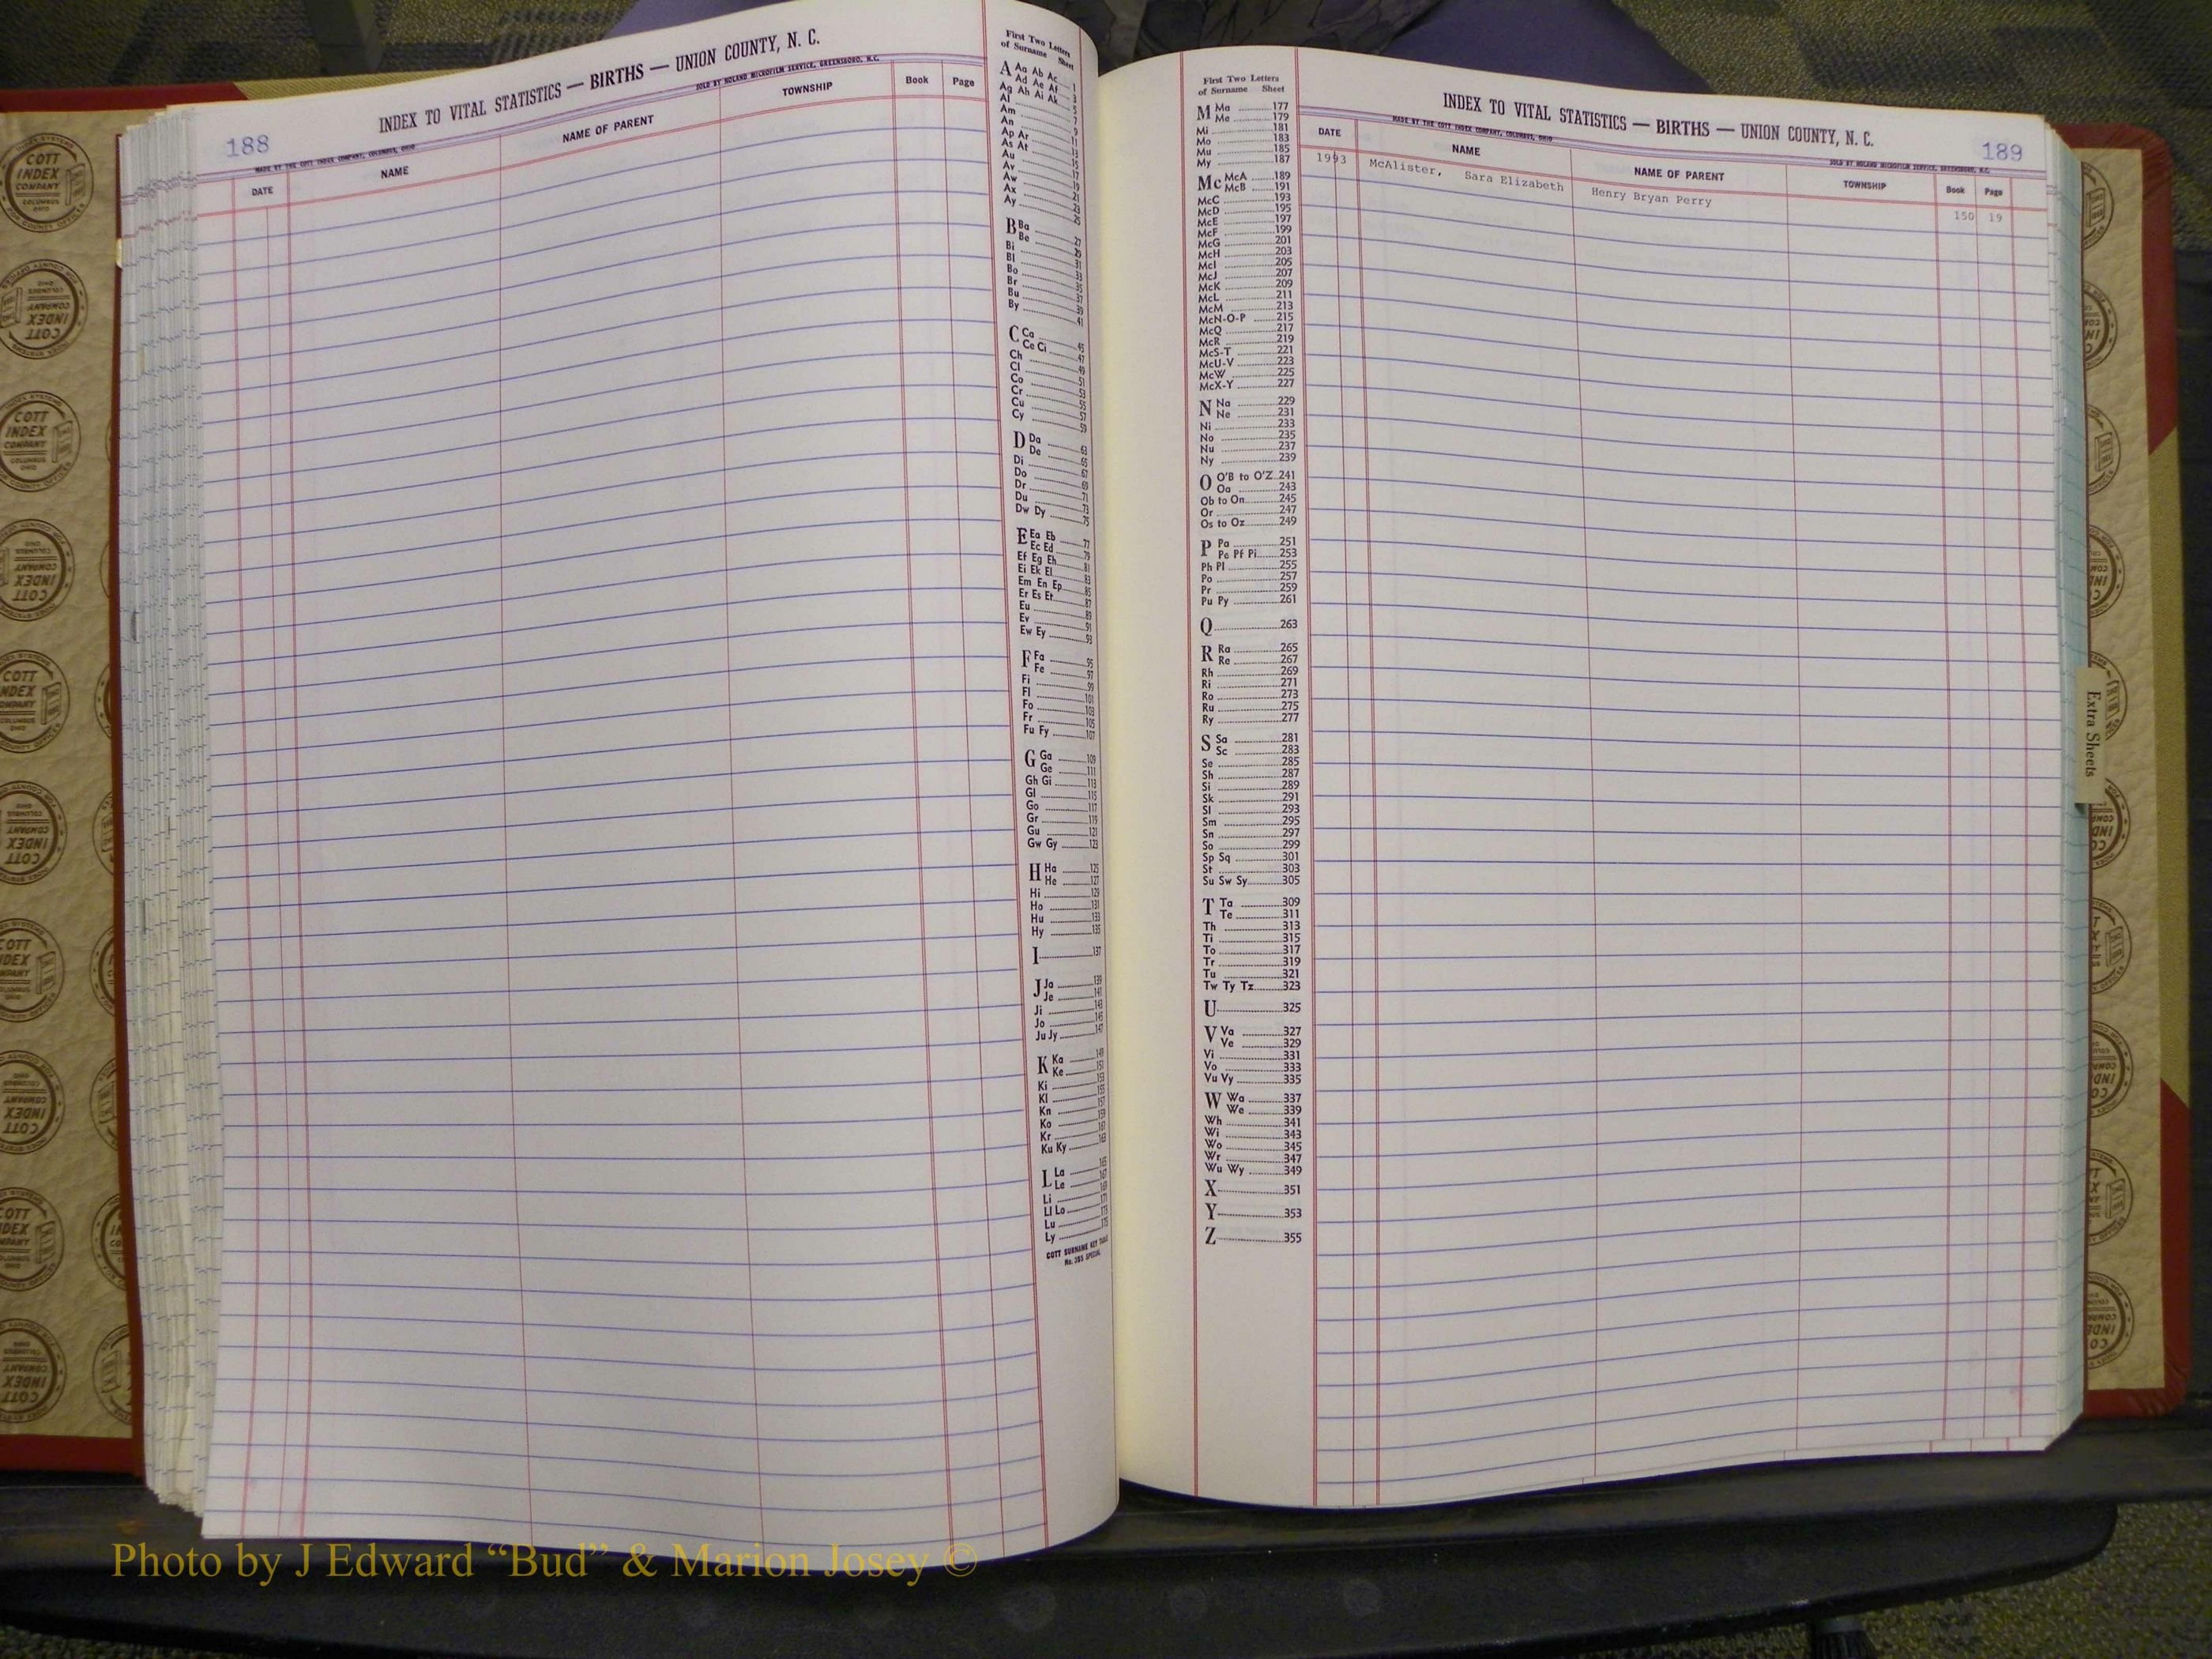 188
INDEX TO VITAL STATISTICS — BIRTHS — UNION COUNTY, N. C.
MADE BY THE COTT INDEX COMPANY, COLUMBUS, OHIO
SOLD BY NOLAND MICROFILM SERVICE, GREENSBORO, N.C.
DATE NAME NAME OF PARENT TOWNSHIP Book Page
First Two Letters
of Surname Sheet
A Aa Ab Ac 1
Ad Ae Af 3
Ag Ah Ai Ak 5
Al 7
Am 9
An 11
Ap Ar 13
As At 15
Au 17
Av 19
Aw 21
Ax 23
Ay 25
B Ba 27
Be 29
Bi 31
Bl 33
Bo 35
Br 37
Bu 39
By 41
C Ca 45
Ce Ci 47
Ch 49
Cl 51
Co 53
Cr 55
Cu 57
Cy 59
D Da 63
De 65
Di 67
Do 69
Dr 71
Du 73
Dw Dy 75
E Ea Eb 77
Ec Ed 79
Ef Eg Eh 81
Ei Ek El 83
Em En Ep 85
Er Es Et 87
Eu 89
Ev 91
Ew Ey 93
F Fa 95
Fe 97
Fi 99
Fl 101
Fo 103
Fr 105
Fu Fy 107
G Ga 109
Ge 111
Gh Gi 113
Gl 115
Go 117
Gr 119
Gu 121
Gw Gy 123
H Ha 125
He 127
Hi 129
Ho 131
Hu 133
Hy 135
I 137
J Ja 139
Je 141
Ji 143
Jo 145
Ju Jy 147
K Ka 149
Ke 151
Ki 153
Kl 155
Kn 157
Ko 159
Kr 161
Ku Ky 163
L La 165
Le 167
Li 169
Ll Lo 171
Lu 173
Ly 175
COTT SURNAME KEY TABLE
No. 385 SPECIAL
First Two Letters
of Surname Sheet
M Ma 177
Me 179
Mi 181
Mo 183
Mu 185
My 187
Mc McA 189
McB 191
McC 193
McD 195
McE 197
McF 199
McG 201
McH 203
McI 205
McJ 207
McK 209
McL 211
McM 213
McN-O-P 215
McQ 217
McR 219
McS-T 221
McU-V 223
McW 225
McX-Y 227
N Na 229
Ne 231
Ni 233
No 235
Nu 237
Ny 239
O O'B to O'Z 241
Oa 243
Ob to On 245
Or 247
Os to Oz 249
P Pa 251
Pe Pf Pi 253
Ph Pl 255
Po 257
Pr 259
Pu Py 261
Q 263
R Ra 265
Re 267
Rh 269
Ri 271
Ro 273
Ru 275
Ry 277
S Sa 281
Sc 283
Se 285
Sh 287
Si 289
Sk 291
Sl 293
Sm 295
Sn 297
So 299
Sp Sq 301
St 303
Su Sw Sy 305
T Ta 309
Te 311
Th 313
Ti 315
To 317
Tr 319
Tu 321
Tw Ty Tz 323
U 325
V Va 327
Ve 329
Vi 331
Vo 333
Vu Vy 335
W Wa 337
We 339
Wh 341
Wi 343
Wo 345
Wr 347
Wu Wy 349
X 351
Y 353
Z 355
INDEX TO VITAL STATISTICS — BIRTHS — UNION COUNTY, N. C.
189
MADE BY THE COTT INDEX COMPANY, COLUMBUS, OHIO
SOLD BY NOLAND MICROFILM SERVICE, GREENSBORO, N.C.
DATE NAME NAME OF PARENT TOWNSHIP Book Page
1993 McAlister, Sara Elizabeth Henry Bryan Perry 150 19
Extra Sheets
COTT
INDEX
COMPANY
COLUMBUS
OHIO
Photo by J Edward “Bud” & Marion Josey ©